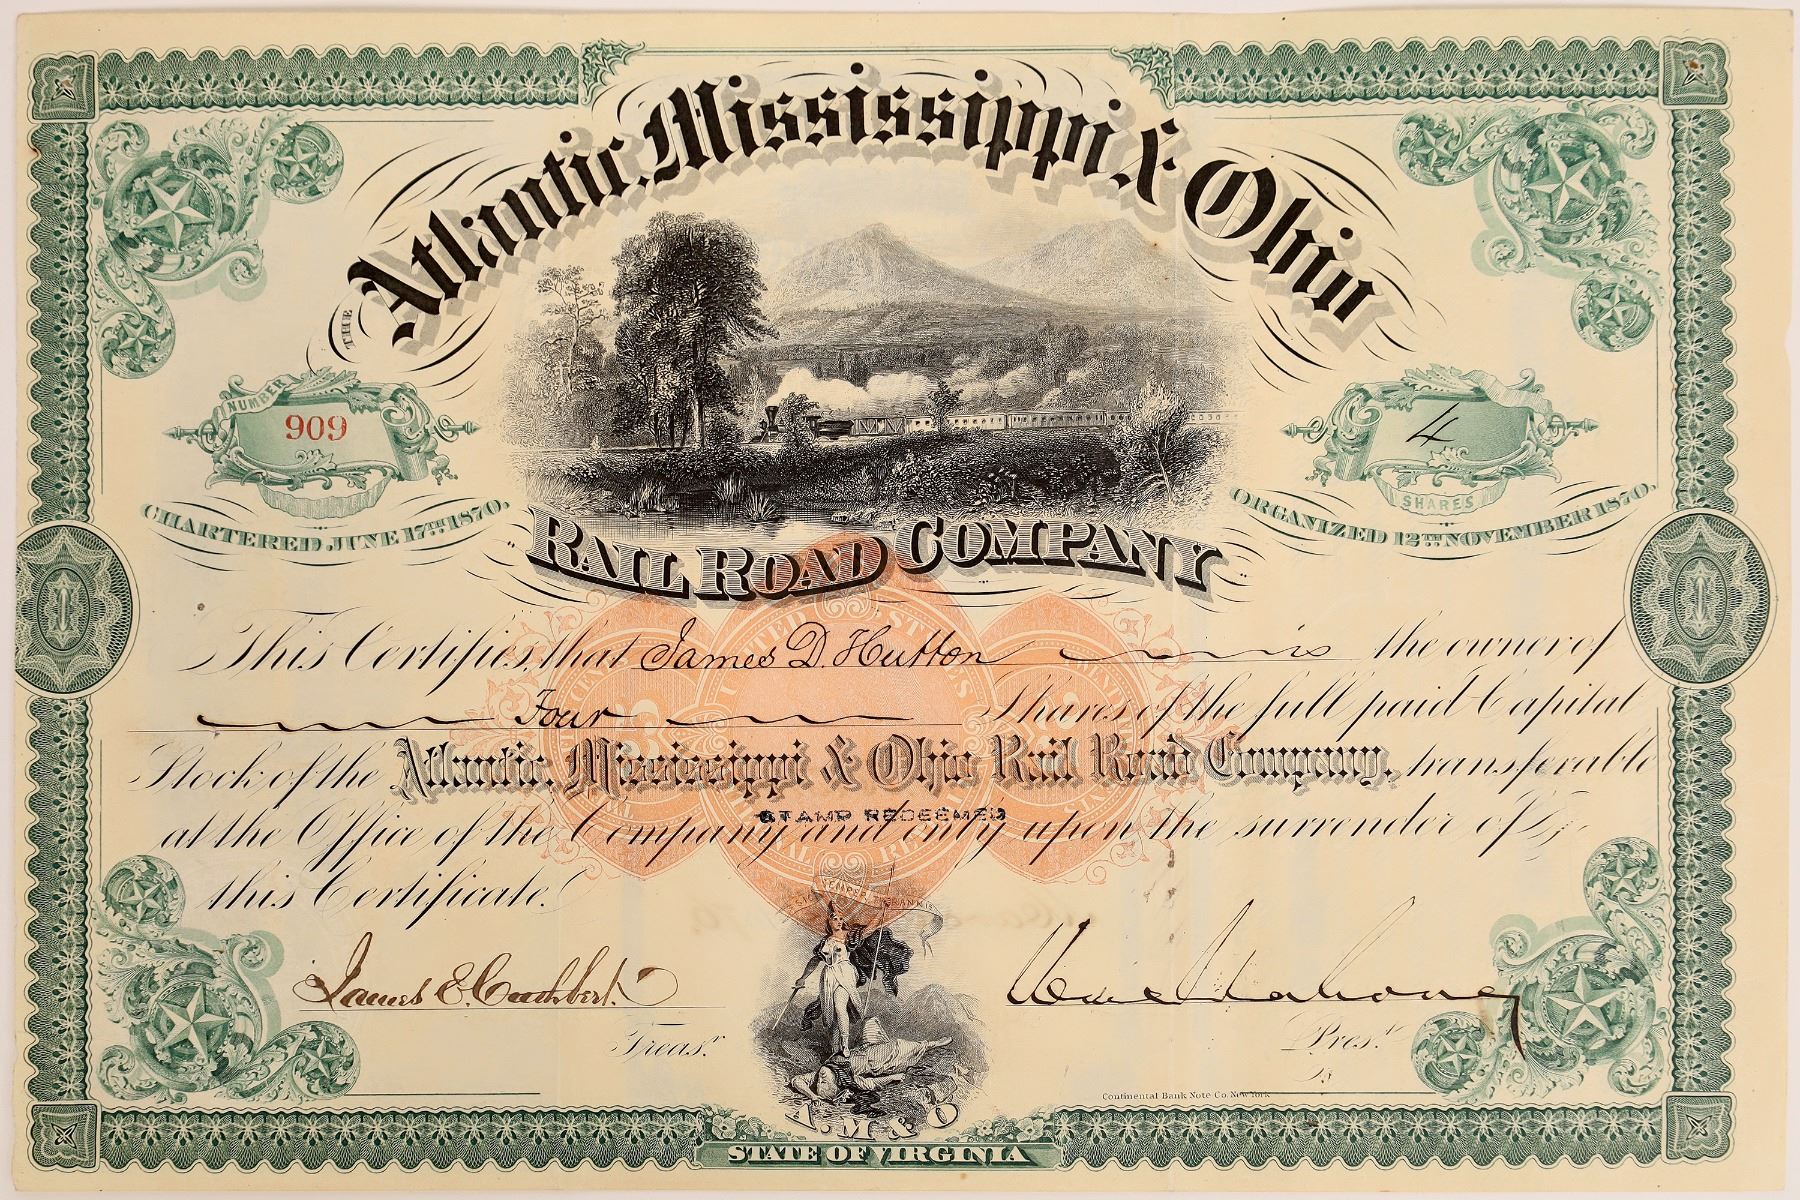 THE
Atlantic, Mississippi & Ohio
NUMBER
909
4
SHARES
CHARTERED JUNE 17TH 1870.
ORGANIZED 12TH NOVEMBER 1870.
RAIL ROAD COMPANY
This Certifies, that James D. Hutton is the owner of
Four Shares of the full paid Capital
Stock of the Atlantic, Mississippi & Ohio Rail Road Company, transferable
STAMP REDEEMED
at the Office of the Company and only upon the surrender of
this Certificate.
UNITED STATES
SIC SEMPER TYRANNIS
James E. Cuthbert
Treasr.
William Mahone
Prest.
Continental Bank Note Co. New York
A. M. & O
STATE OF VIRGINIA